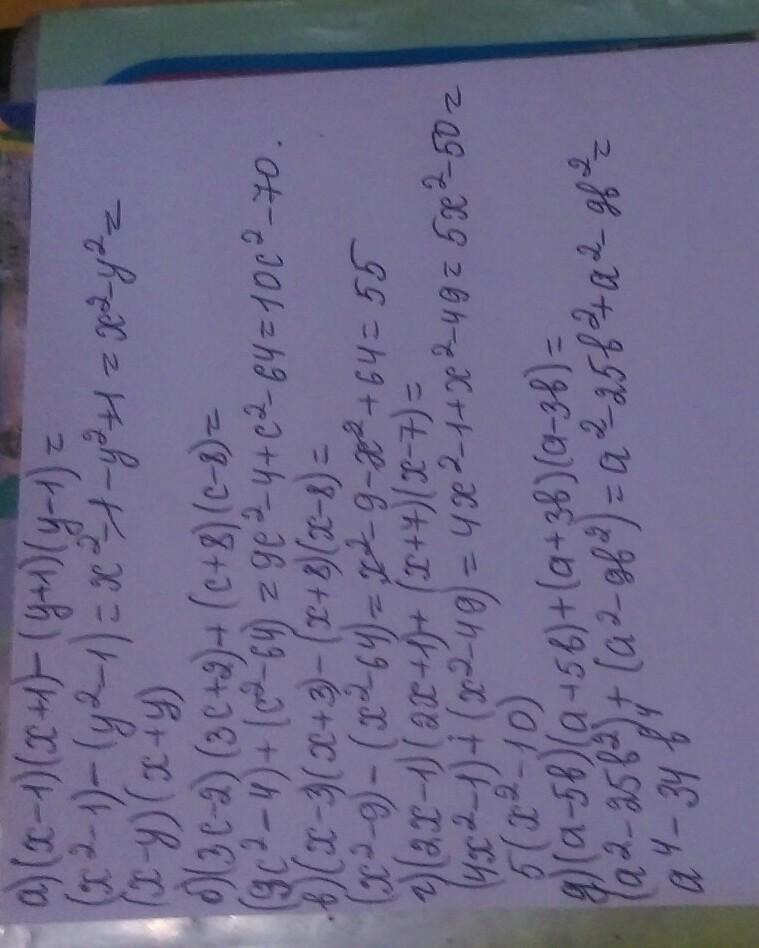 а) (x-1)(x+1)-(y+1)(y-1)=
(x²-1)-(y²-1)=x²-1-y²+1=x²-y²=
(x-y)(x+y)
б) (3c-2)(3c+2)+(c+8)(c-8)=
(9c²-4)+(c²-64)=9c²-4+c²-64=10c²-70.
в) (x-3)(x+3)-(x+8)(x-8)=
(x²-9)-(x²-64)=x²-9-x²+64=55
г) (2x-1)(2x+1)+(x+7)(x-7)=
(4x²-1)+(x²-49)=4x²-1+x²-49=5x²-50=
5(x²-10)
д) (a-5b)(a+5b)+(a+3b)(a-3b)=
(a²-25b²)+(a²-9b²)=a²-25b²+a²-9b²=
a⁴-34b⁴